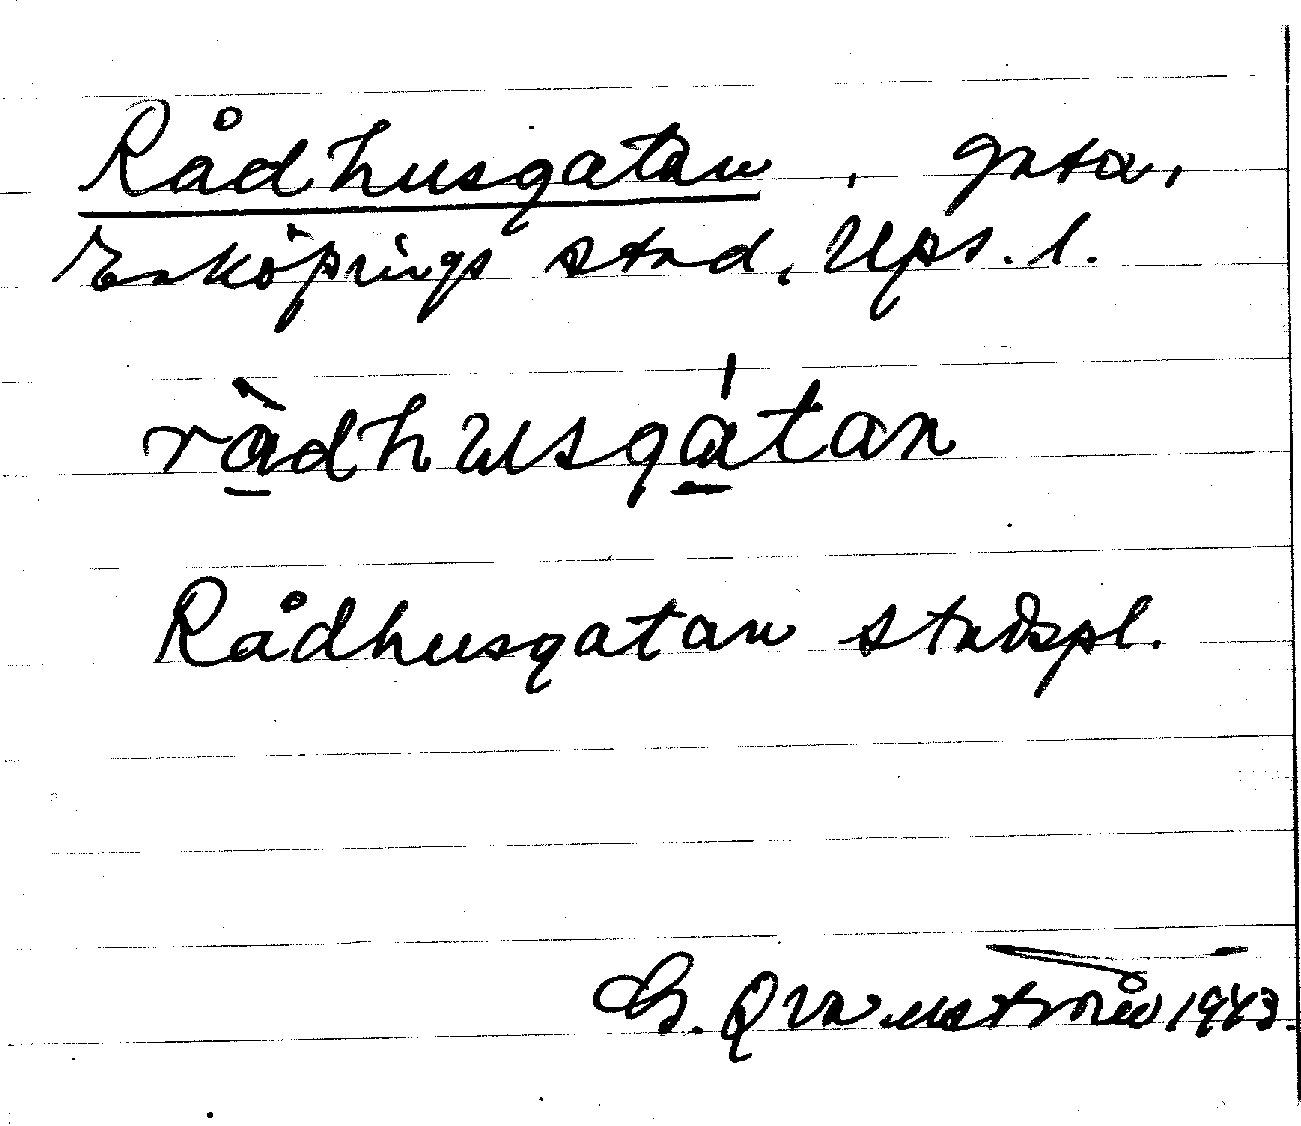 Rådhusgatan, gata,
Enköpings stad, Ups. l.
rå̱̀dhusgá̱tan
Rådhusgatan stadspl.
G. Qvarnström 1943.